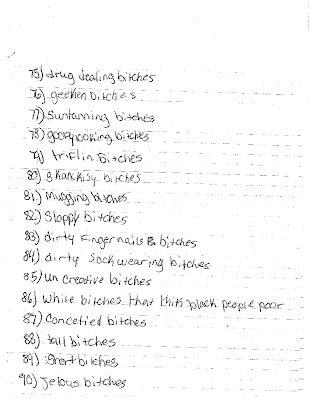 75) drug dealing bitches
76) geeken bitches
77) Suntanning bitches
78) goofy looking bitches
79) triflin Bitches
80) Skankisy bitches
81) Mugging bitches
82) Sloppy bitches
83) dirty fingernails B. bitches
84) dirty Sock wearing bitches
85) Un creative bitches
86) White bitches that think black people poor
87) Concetied bitches
88) tall bitches
89) Short bitches
90) Jelous bitches